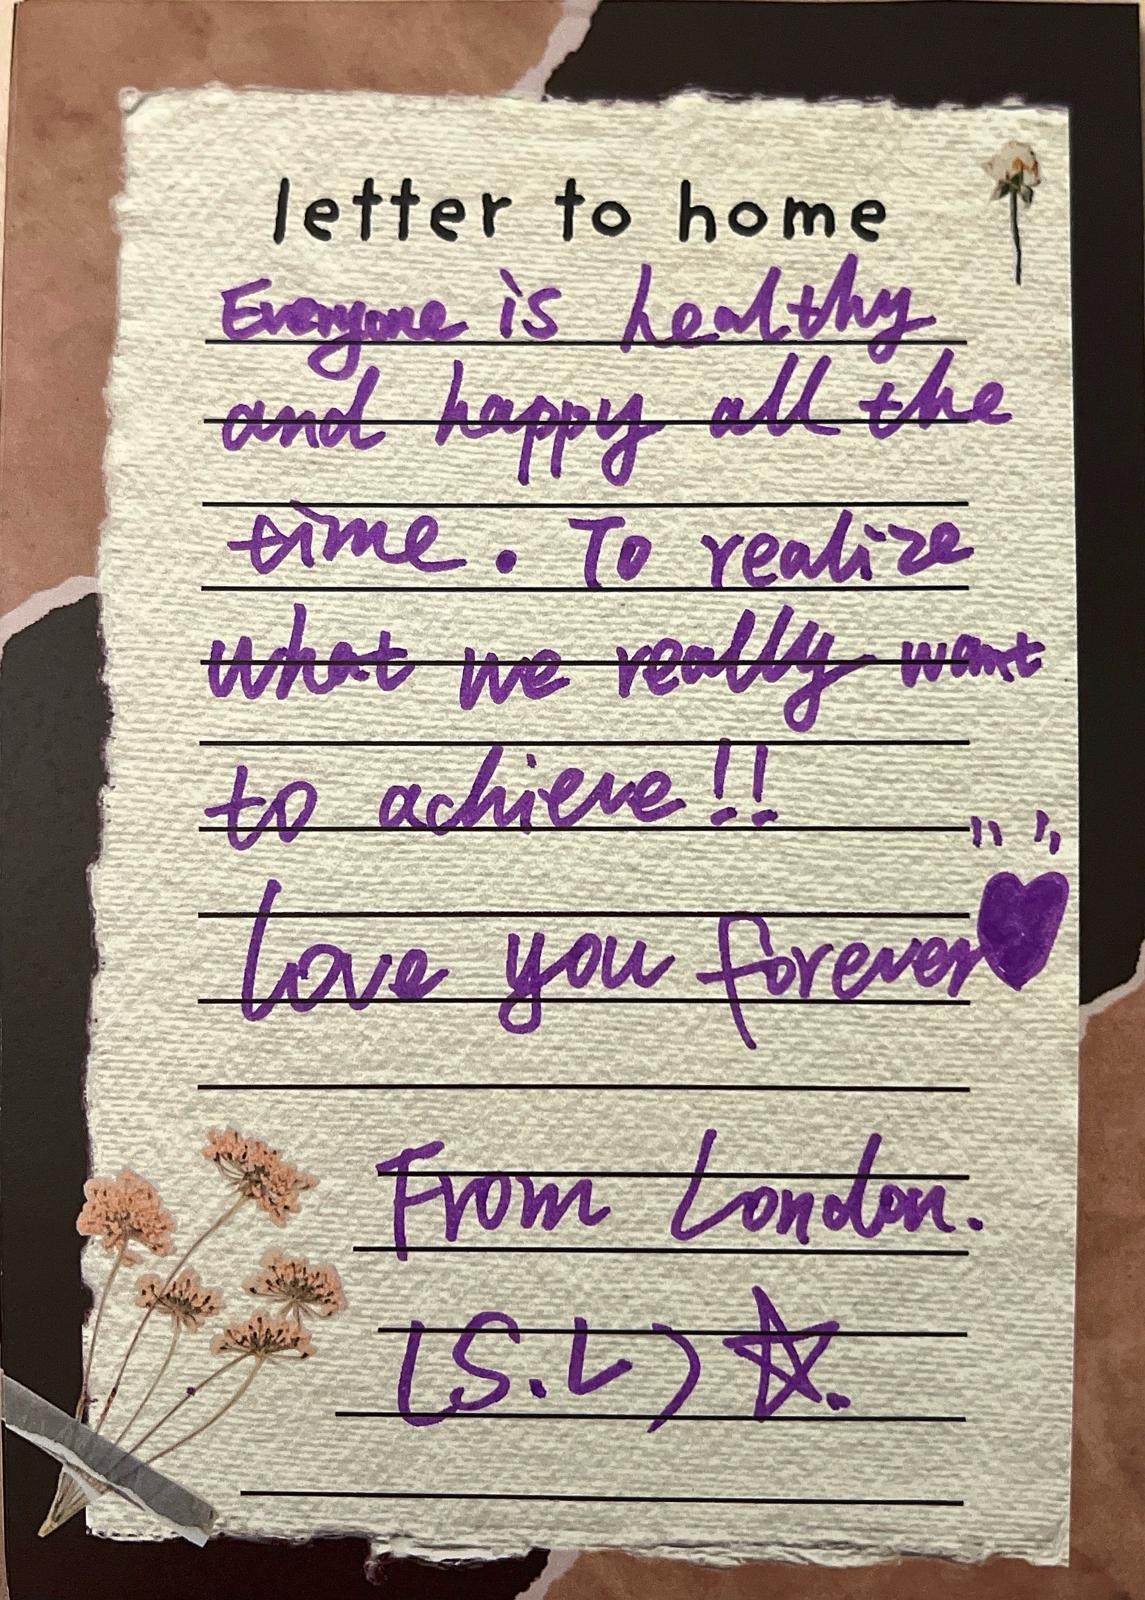 letter to home
Everyone is healthy
and happy all the
time. To realize
what we really want
to achieve!!
Love you forever
From London.
(S.L)